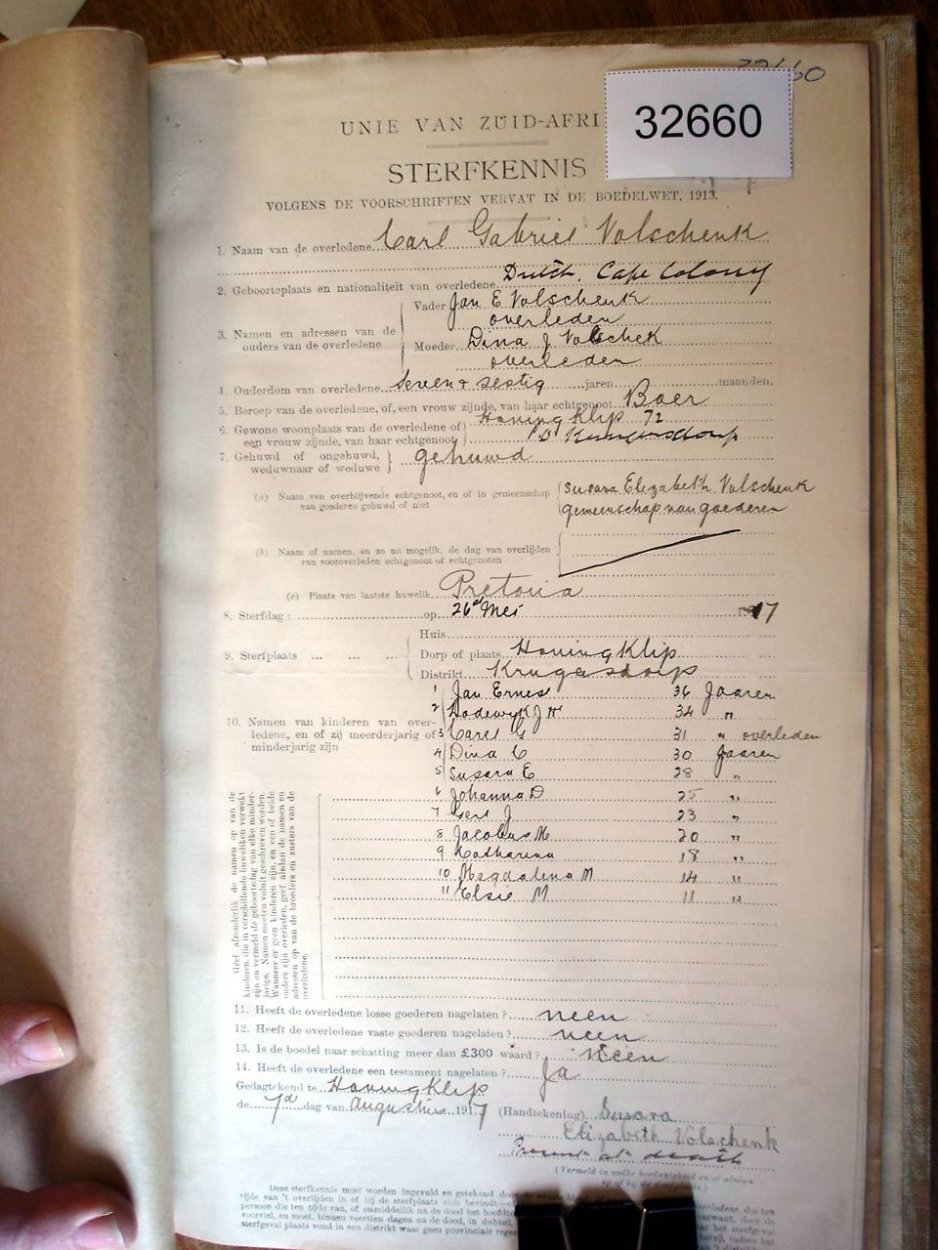 32660
UNIE VAN ZUID-AFRI
STERFKENNIS
VOLGENS DE VOORSCHRIFTEN VERVAT IN DE BOEDELWET, 1913.
1. Naam van de overledene Carl Gabriel Volschenk
2. Geboorteplaats en nationaliteit van overledene Dutch. Cape Colony
3. Namen en adressen van de ouders van de overledene
Vader Jan E Volschenk
overleden
Moeder Dina J Volschek
overleden
4. Ouderdom van overledene seven + sestig jaren maanden.
5. Beroep van de overledene, of, een vrouw zijnde, van haar echtgenoot Boer
6. Gewone woonplaats van de overledene of Honing Klip 72
een vrouw zijnde, van haar echtgenoot Krugersdorp
7. Gehuwd of ongehuwd, weduwnaar of weduwe gehuwd
(a) Naam van overblijvende echtgenoot, en of in gemeenschap Susara Elizabeth Volschenk
van goederen gehuwd of niet gemeenschap van goederen
(b) Naam of namen, en zo na mogelik, de dag van overlijden
van vooroverleden echtgenoot of echtgenoten
(c) Plaats van laatste huwelik Pretoria
8. Sterfdag: op 26 Mei 1917
9. Sterfplaats ... ... ...
Huis
Dorp of plaats Honing Klip
Distrikt Krugersdorp
10. Namen van kinderen van overledene, en of zij meerderjarig of minderjarig zijn
1 Jan Ernest 36 Jaaren
2 Lodewyk J H 34 "
3 Carel G 31 " overleden
4 Dina C 30 Jaaren
5 Susara E 28 "
6 Johanna D 25 "
7 Gert J 23 "
8 Jacobus M 20 "
9 Katharena 18 "
10 Magdalena M 14 "
11 Elsie M 11 "
Geef afzonderlik de namen op van de
kinderen, die in verschillende huweliken verwekt
zijn en vermeld de geboortedag van elke minderjarige.
Namen moeten voluit geschreven worden.
Wanneer er geen kinderen zijn, en een of beide
ouders zijn overleden, geef alsdan de namen en
adressen op van de broeders en zusters van de
overledene.
11. Heeft de overledene losse goederen nagelaten? neen
12. Heeft de overledene vaste goederen nagelaten? neen
13. Is de boedel naar schatting meer dan £300 waard? Neen
14. Heeft de overledene een testament nagelaten? Ja
Gedagtekend te Honing Klip
de 7d dag van Augustus 1917 (Handtekening) Susara
Elizabeth Volschenk
Present at death
(Vermeld in welke hoedanigheid en of
Deze sterfkennis moet worden ingevuld en getekend door de